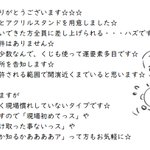 りがとうございます☆☆☆
とアクリルスタンドを用意しました☆
いてきた方全員に差し上げられる・・・ハズです
件はありません☆
少数なんで、くじも使って運要素多目です☆
所を告知します☆
許される範囲で開演近くまでいると思います☆
ますが
く現場慣れしていないタイプです☆
すので「現場初めてっス」や
け取った事ないっス」や
か知るかあああああア」って方もお気軽に☆